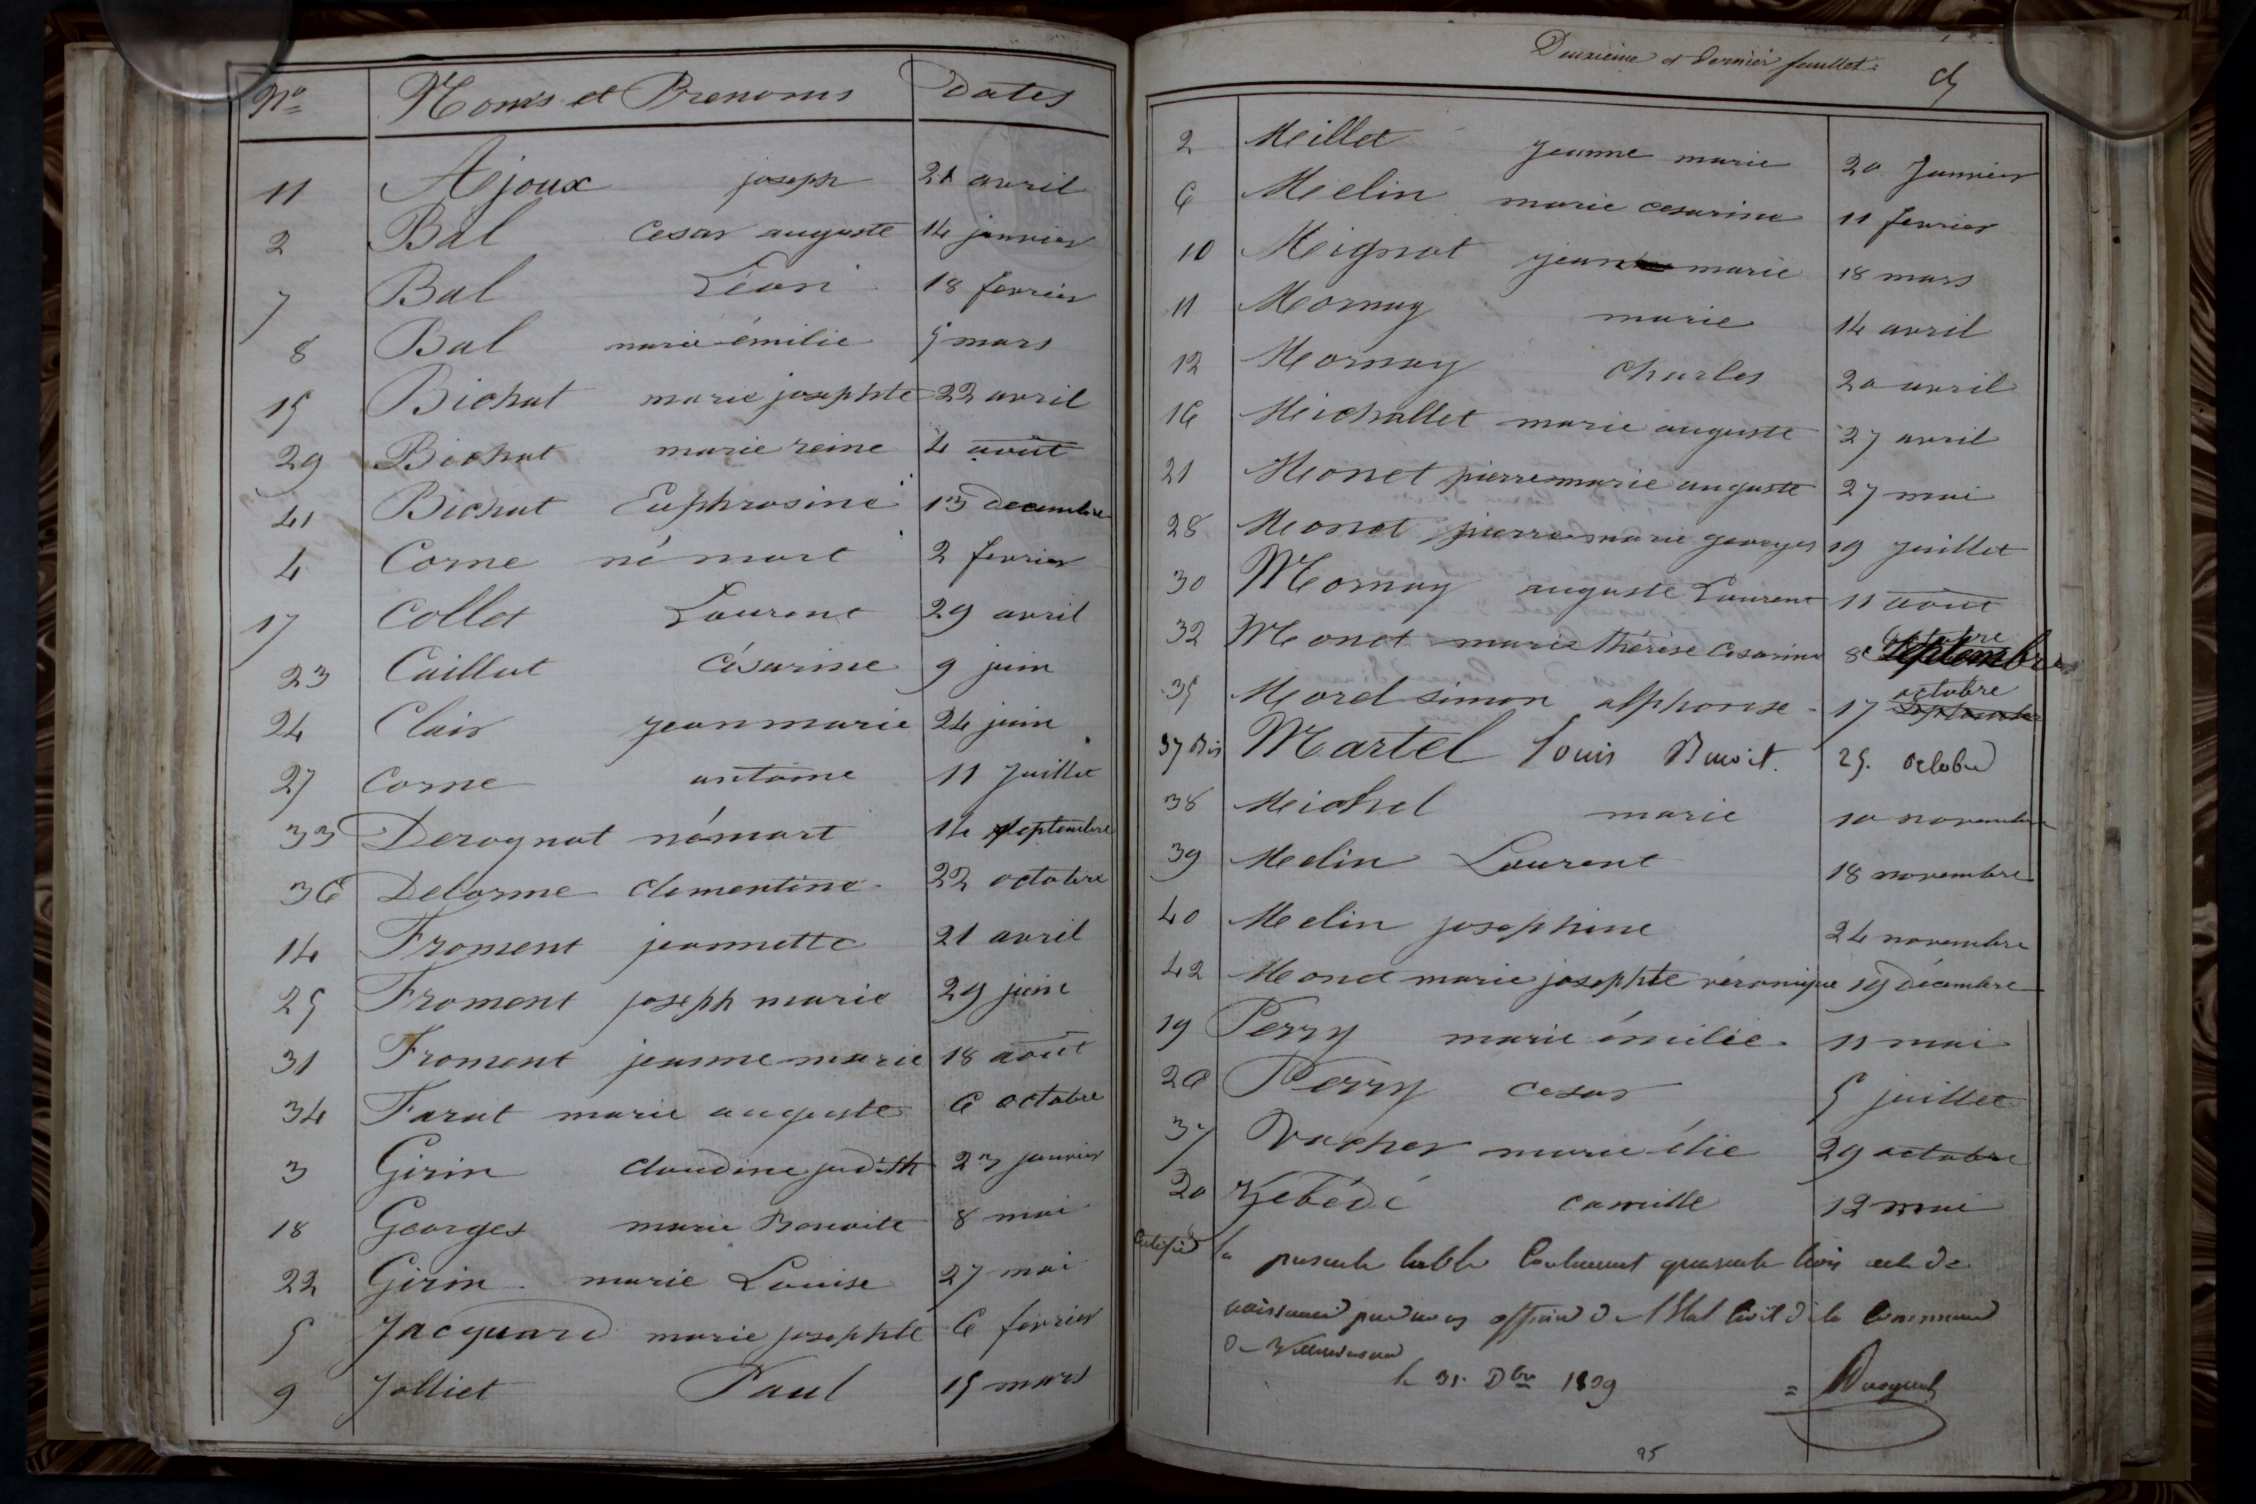 No Noms et Prenoms Dates
11 Ajoux joseph 21 avril
2 Bal Cesar auguste 14 janvier
7 Bal Léoni 18 fevrier
8 Bal marie émilie 5 mars
15 Bichat marie josephte 22 avril
29 Bichat marie reine 4 août
41 Bichat Euphrosine 13 decembre
4 Corne né mort 2 fevrier
17 Collet Laurent 29 avril
23 Caillat Césarine 9 juin
24 Clair jean marie 24 juin
27 Corne antoine 11 juillet
33 Derognat né mort 14 septembre
36 Delorme clementine 22 octobre
14 Froment jeannette 21 avril
25 Froment joseph marie 29 juin
31 Froment jeanne marie 18 août
34 Farat marie auguste 6 octobre
3 Girin claudine judith 23 janvier
18 Georges marie Benoite 8 mai
22 Girin marie Louise 27 mai
5 Jacquand marie josephte 6 fevrier
9 Jolliet Paul 15 mars
Deuxieme et dernier feuillet
2 Millet jeanne marie 20 Janvier
6 Melin marie cesarine 11 fevrier
10 Mignot jean marie 18 mars
11 Mornay marie 14 avril
12 Mornay Charles 20 avril
16 Michallet marie auguste 27 avril
21 Monet pierre marie auguste 27 mai
28 Monet pierre marie georges 19 juillet
30 Mornay auguste Laurent 11 août
32 Monet marie thérèse Cesarine 8 septembre octobre
35 Morel simon alphonse 17 septembre octobre
37 Bis Martel Louis Benoit. 25. octobre
38 Michel marie 10 novembre
39 Melin Laurent 18 novembre
40 Melin josephine 24 novembre
42 Monet marie josephte véronique 19 décembre
19 Perry marie émilie 11 mai
26 Perry cesar 5 juillet
37 Vacher marie élie 29 octobre
20 Zébédé camille 12 mai
Certifié la presente table Contenant quarante trois acte de
naissance par nous officier de l'Etat Civil de la Commune
de
le 31 Dbre 1839
95